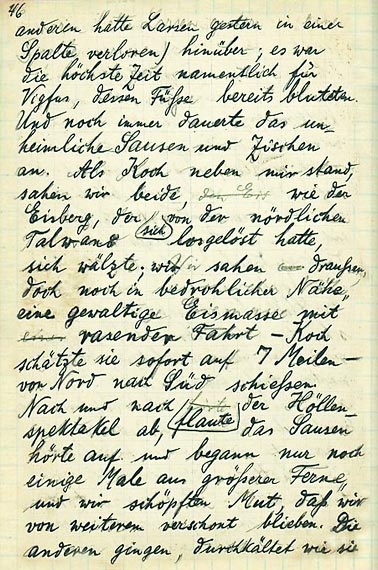 46
anderen hatte Larsen gestern in einer
Spalte verloren) hinüber; es war
die höchste Zeit namentlich für
Vigfus, dessen Füsse bereits bluteten.
Und noch immer dauerte das un-
heimliche Sausen und Zischen
an. Als Koch neben mir stand,
sahen wir beide, den Eis wie der
Eisberg, der sich von der nördlichen
Talwand losgelöst hatte,
sich wälzte; wir sahen draussen,
doch noch in bedrohlicher Nähe,
eine gewaltige Eismasse mit
rasender Fahrt – Koch
schätzte sie sofort auf 7 Meilen –
von Nord nach Süd schiessen.
Nach und nach der Höllen-
spektakel ab, flaute das Sausen
hörte auf und begann nur noch
einige Male aus größerer Ferne,
und wir schöpften Mut, daß wir
von weiterem verschont blieben. Die
anderen gingen, durchkältet wie sie